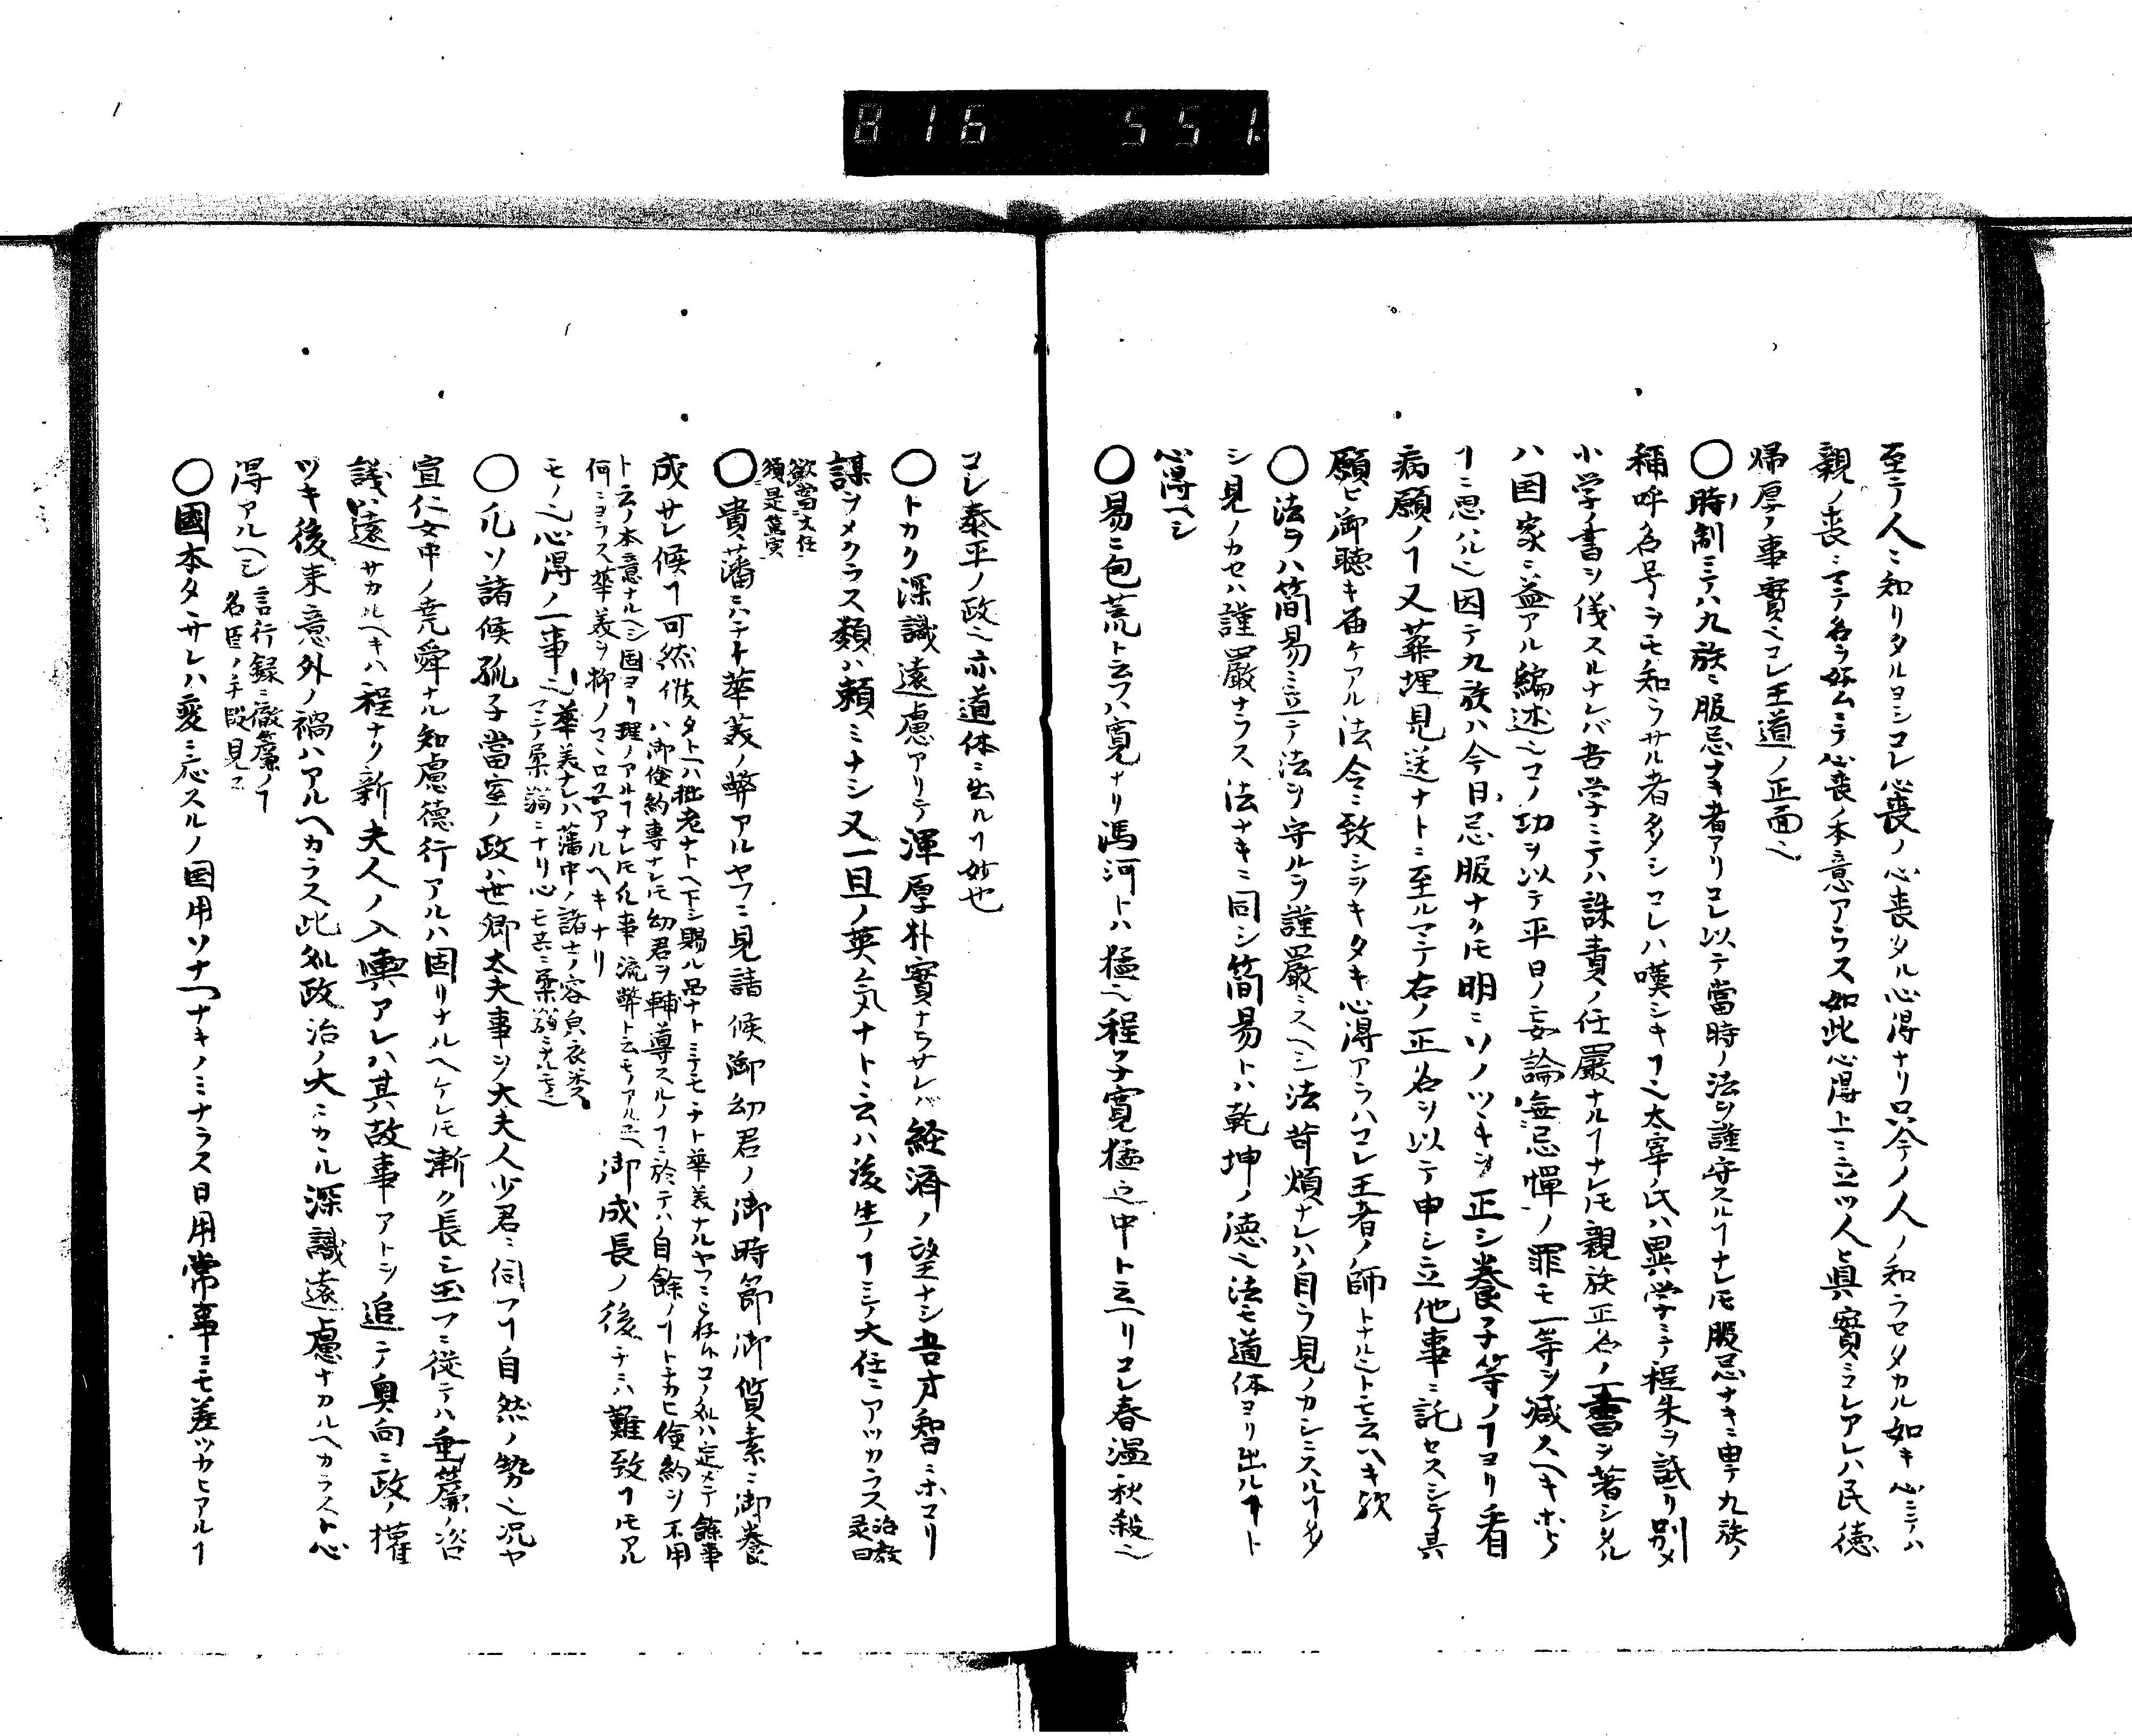 816 551
至テ人ニ知リタルヨシコレ心喪ノ心喪タル心得ナリ只今ノ人ノ知ラセタカル如キ心ニテハ
親ノ喪ニマテ名ヲ好ムニテ心喪ノ本意アラス如此心得上ニ立ツ人ヨ真實ニコレアレハ民徳
帰厚ノ事實ヘコレ王道ノ正面ヘ
〇時制ニテハ九族ニ服忌ナキ者アリコレ以テ當時ノ法ヲ謹守スルヿナレ𪜈服忌ナキニ由テ九族ノ
稱呼名号ヲモ知ラサル者多シコレハ嘆シキヿヘ太宰氏ハ異学ニテ程朱ヲ詆リ別メ
小学ノ書ヲ儀スルナレバ吾学ニテハ誅責ノ任嚴ナルヿナレ𪜈親族正名ノ一書ヲ著シタル
ハ国家ニ益アル編述ヘコノ功ヲ以テ平日ノ妄論無忌憚ノ罪モ一等ヲ減スヘキホト
ヿニ思ハルヘ因テ九族ハ今日忌服ナク𪜈明ニソノツキヲ正シ養子等ノヿヨリ看
病願ノヿ又葬埋見送ナトニ至ルマテ右ノ正名ヲ以テ申シ立他事ニ託セスシテ具
願ヒ御聴キ届ケアル法令ニ致シヲキタキ心得アラハコレ王者ノ師トナルヘトモ云ヘキ歟
〇法ヲハ簡易ニ立テ法ヲ守ルヲ謹嚴ニスヘシ法苛煩ナレハ自ラ見ノカシニスルヿ多
シ見ノカセハ謹嚴ナラス法ナキニ同シ簡易トハ乾坤ノ徳ヘ法モ道体ヨリ出ルヿト
心得ヘシ
〇易ニ包荒ト云フハ寛ナリ馮河トハ猛ヘ程子寛猛之中ト云ヘリコレ春温秋殺ヘ
コレ泰平ノ政ヘ亦道体ニ出ルヿ妙也
〇トカク深識遠慮アリテ渾厚朴實ナラサレバ経済ノ望ナシ吾才智ニホコリ
謀ヲメクラス類ハ頼ミナシ又一旦ノ英気ナトニ云ハ後生ノヿニテ大任ニアツカラス治教
録曰
欲當大任
須是篤実
〇貴藩ニハチト華美ノ弊アルヤフニ見諸候御幼君ノ御時節御質素ニ御養
成サレ候ヿ可然候タトヘハ批老ナトヘ下シ賜ル品ナトニテモチト華美ナルヤフニ
ハ御儉約専ナレ𪜈幼君ヲ輔導スルノヿニ於テハ自餘ノヿトチカヒ儉約ヲ不用
ト云ノ本意ナルヘシ固ヨリ理ノアルヿナレ𪜈
何ニヨラス華美ヲ抑ノ
御成長ノ後ナニハ難致ヿモアル
モノヘ心得ノ一事ヘ華美ナレハ藩中ノ諸士ノ容皃衣裳
マテ柔弱ニナリ心モ共ニ柔弱ニナルモノヘ
〇凡ソ諸候孤子當室ノ政ハ世卿大夫事ヲ大夫人少君ニ伺フヿ自然ノ勢ヘ況ヤ
宣仁女中ノ尭舜ナル知慮徳行アルハ固リナルヘケレ𪜈漸ク長シ玉フニ従テハ垂簾ノ沿
議ハ遠サカルヘキハ程ナリ新夫人ノ入輿アレハ其故事アトヲ追ニテ奥向ニ政ノ權
ツキ後来意外ノ禍ハアルヘカラス此処政治ノ大ニカル深識遠慮ナカルヘカラスト心
得アルヘシ言行録ニ徹簾ノヿ
名臣ノ手段見ユ
〇國本タヽサレハ変ニ応スルノ国用ソナヘナキノミナラス日用常事ニモ差ツカヒアルヿ